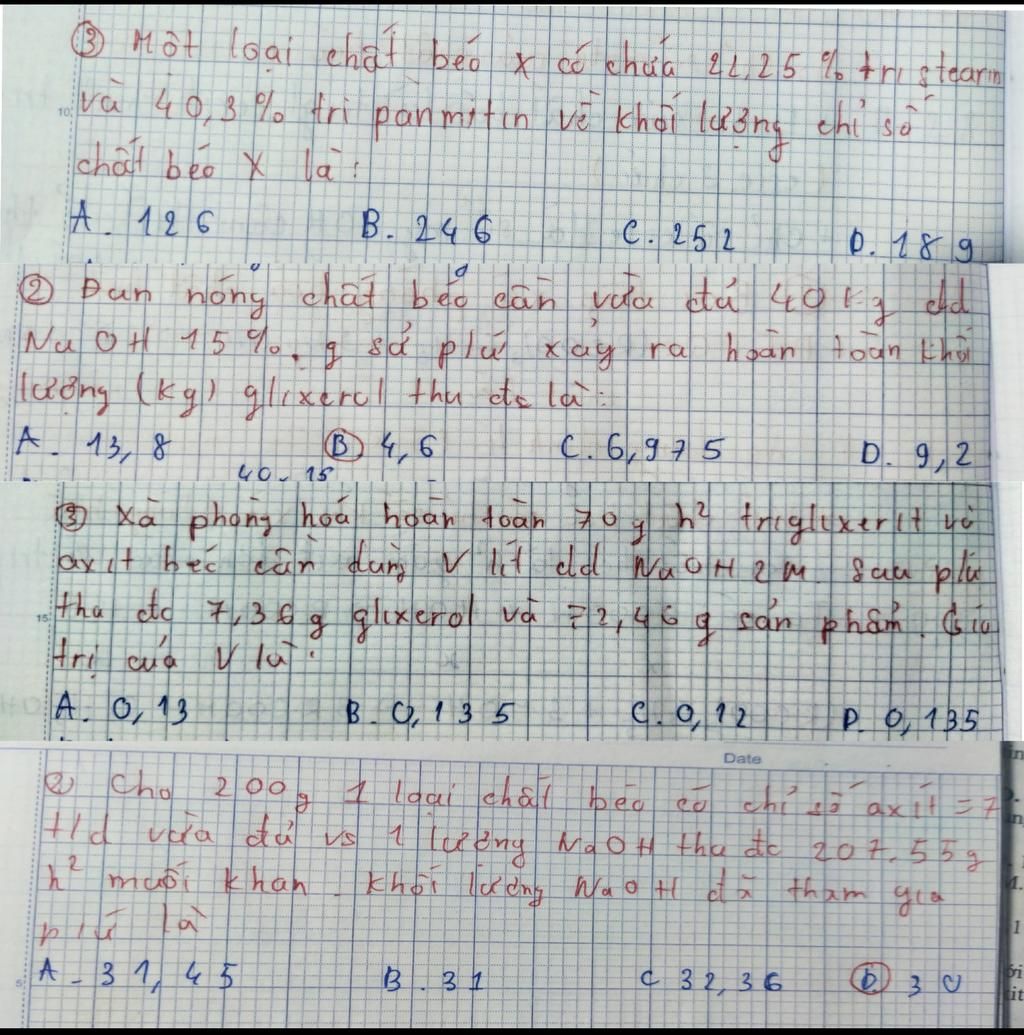 ③ Một loại chất béo X có chứa 22,25 % tristearin
và 40,3% tri panmitin về khối lượng chỉ số
chất béo X là:
A. 126 B. 246 C. 252 D. 189
② Đun nóng chất béo cần vừa đủ 40 Kg dd
NaOH 15 %. g sử pứ xảy ra hoàn toàn khối
lượng (Kg) glixerol thu đc là:
A. 13,8 B 4,6 C. 6,975 D. 9,2
40. 15
③ Xà phòng hoá hoàn toàn 70g h² triglixerit và
axit béo cần dùng V lít dd NaOH 2M. Sau pứ
thu đc 7,36 g glixerol và 72,46 g sản phẩm. Giá
trị của V là:
A. 0,13 B. 0,135 C. 0,12 D. 0,135
Date
② Cho 200g 1 loại chất béo có chỉ số axit = 7
t/d vừa đủ vs 1 lượng NaOH thu đc 207,55g
h² muối khan. Khối lượng NaOH đã tham gia
pứ là
A. 31,45 B. 31 C 32,36 D. 30